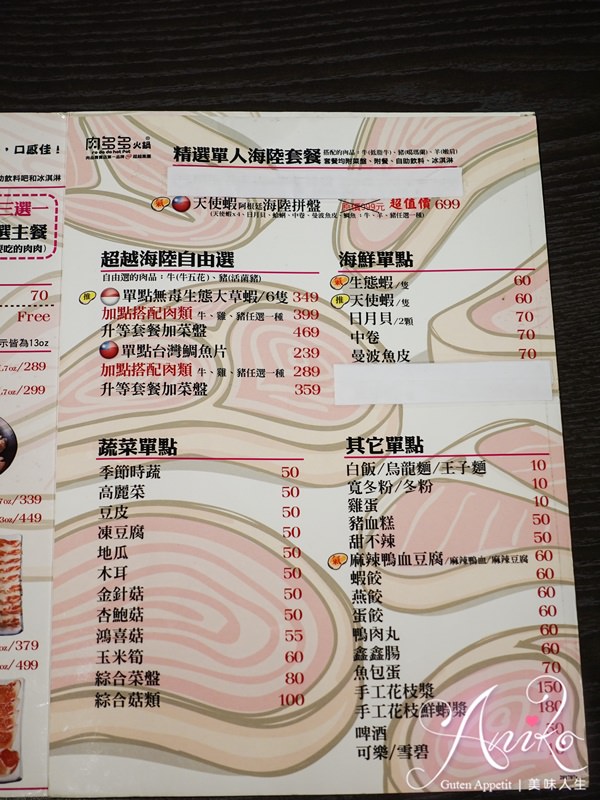 ，口感佳！
助飲料吧和冰淇淋
三選一
選主餐
要吃的肉肉)
70
Free
示皆為13oz
.7oz/289
.7oz/299
7oz/339
3oz/449
oz/379
oz/499
肉多多火鍋
精選單人海陸套餐 搭配的肉品：牛(低脂牛)、豬(瑪瑙蘭)、羊(嫩肩)
套餐均附菜盤、附餐、自助飲料、冰淇淋
天使蝦 阿根廷 海陸拼盤 超值價 699
(天使蝦x4、日月貝、蛤蜊、中卷、曼波魚皮、鯛魚；牛、羊、豬任選一種)
超越海陸自由選
自由選的肉品：牛(牛五花)、豬(活菌豬)
推 單點無毒生態大草蝦/6隻 349
加點搭配肉類 牛、雞、豬任選一種 399
升等套餐加菜盤 469
單點台灣鯛魚片 239
加點搭配肉類 牛、雞、豬任選一種 289
升等套餐加菜盤 359
海鮮單點
生態蝦/隻 60
推 天使蝦/隻 60
日月貝/2顆 70
中卷 70
曼波魚皮 70
蔬菜單點
季節時蔬 50
高麗菜 50
豆皮 50
凍豆腐 50
地瓜 50
木耳 50
金針菇 50
杏鮑菇 50
鴻喜菇 55
玉米筍 60
綜合菜盤 80
綜合菇類 100
其它單點
白飯/烏龍麵/王子麵 10
寬冬粉/冬粉 10
雞蛋 10
豬血糕 50
甜不辣 50
麻辣鴨血豆腐/麻辣鴨血/麻辣豆腐 60
蝦餃 60
燕餃 60
蛋餃 60
鴨肉丸 60
鑫鑫腸 60
魚包蛋 70
手工花枝漿 150
手工花枝鮮蝦漿 180
啤酒
可樂/雪碧
Aniko
Guten Appetit | 美味人生